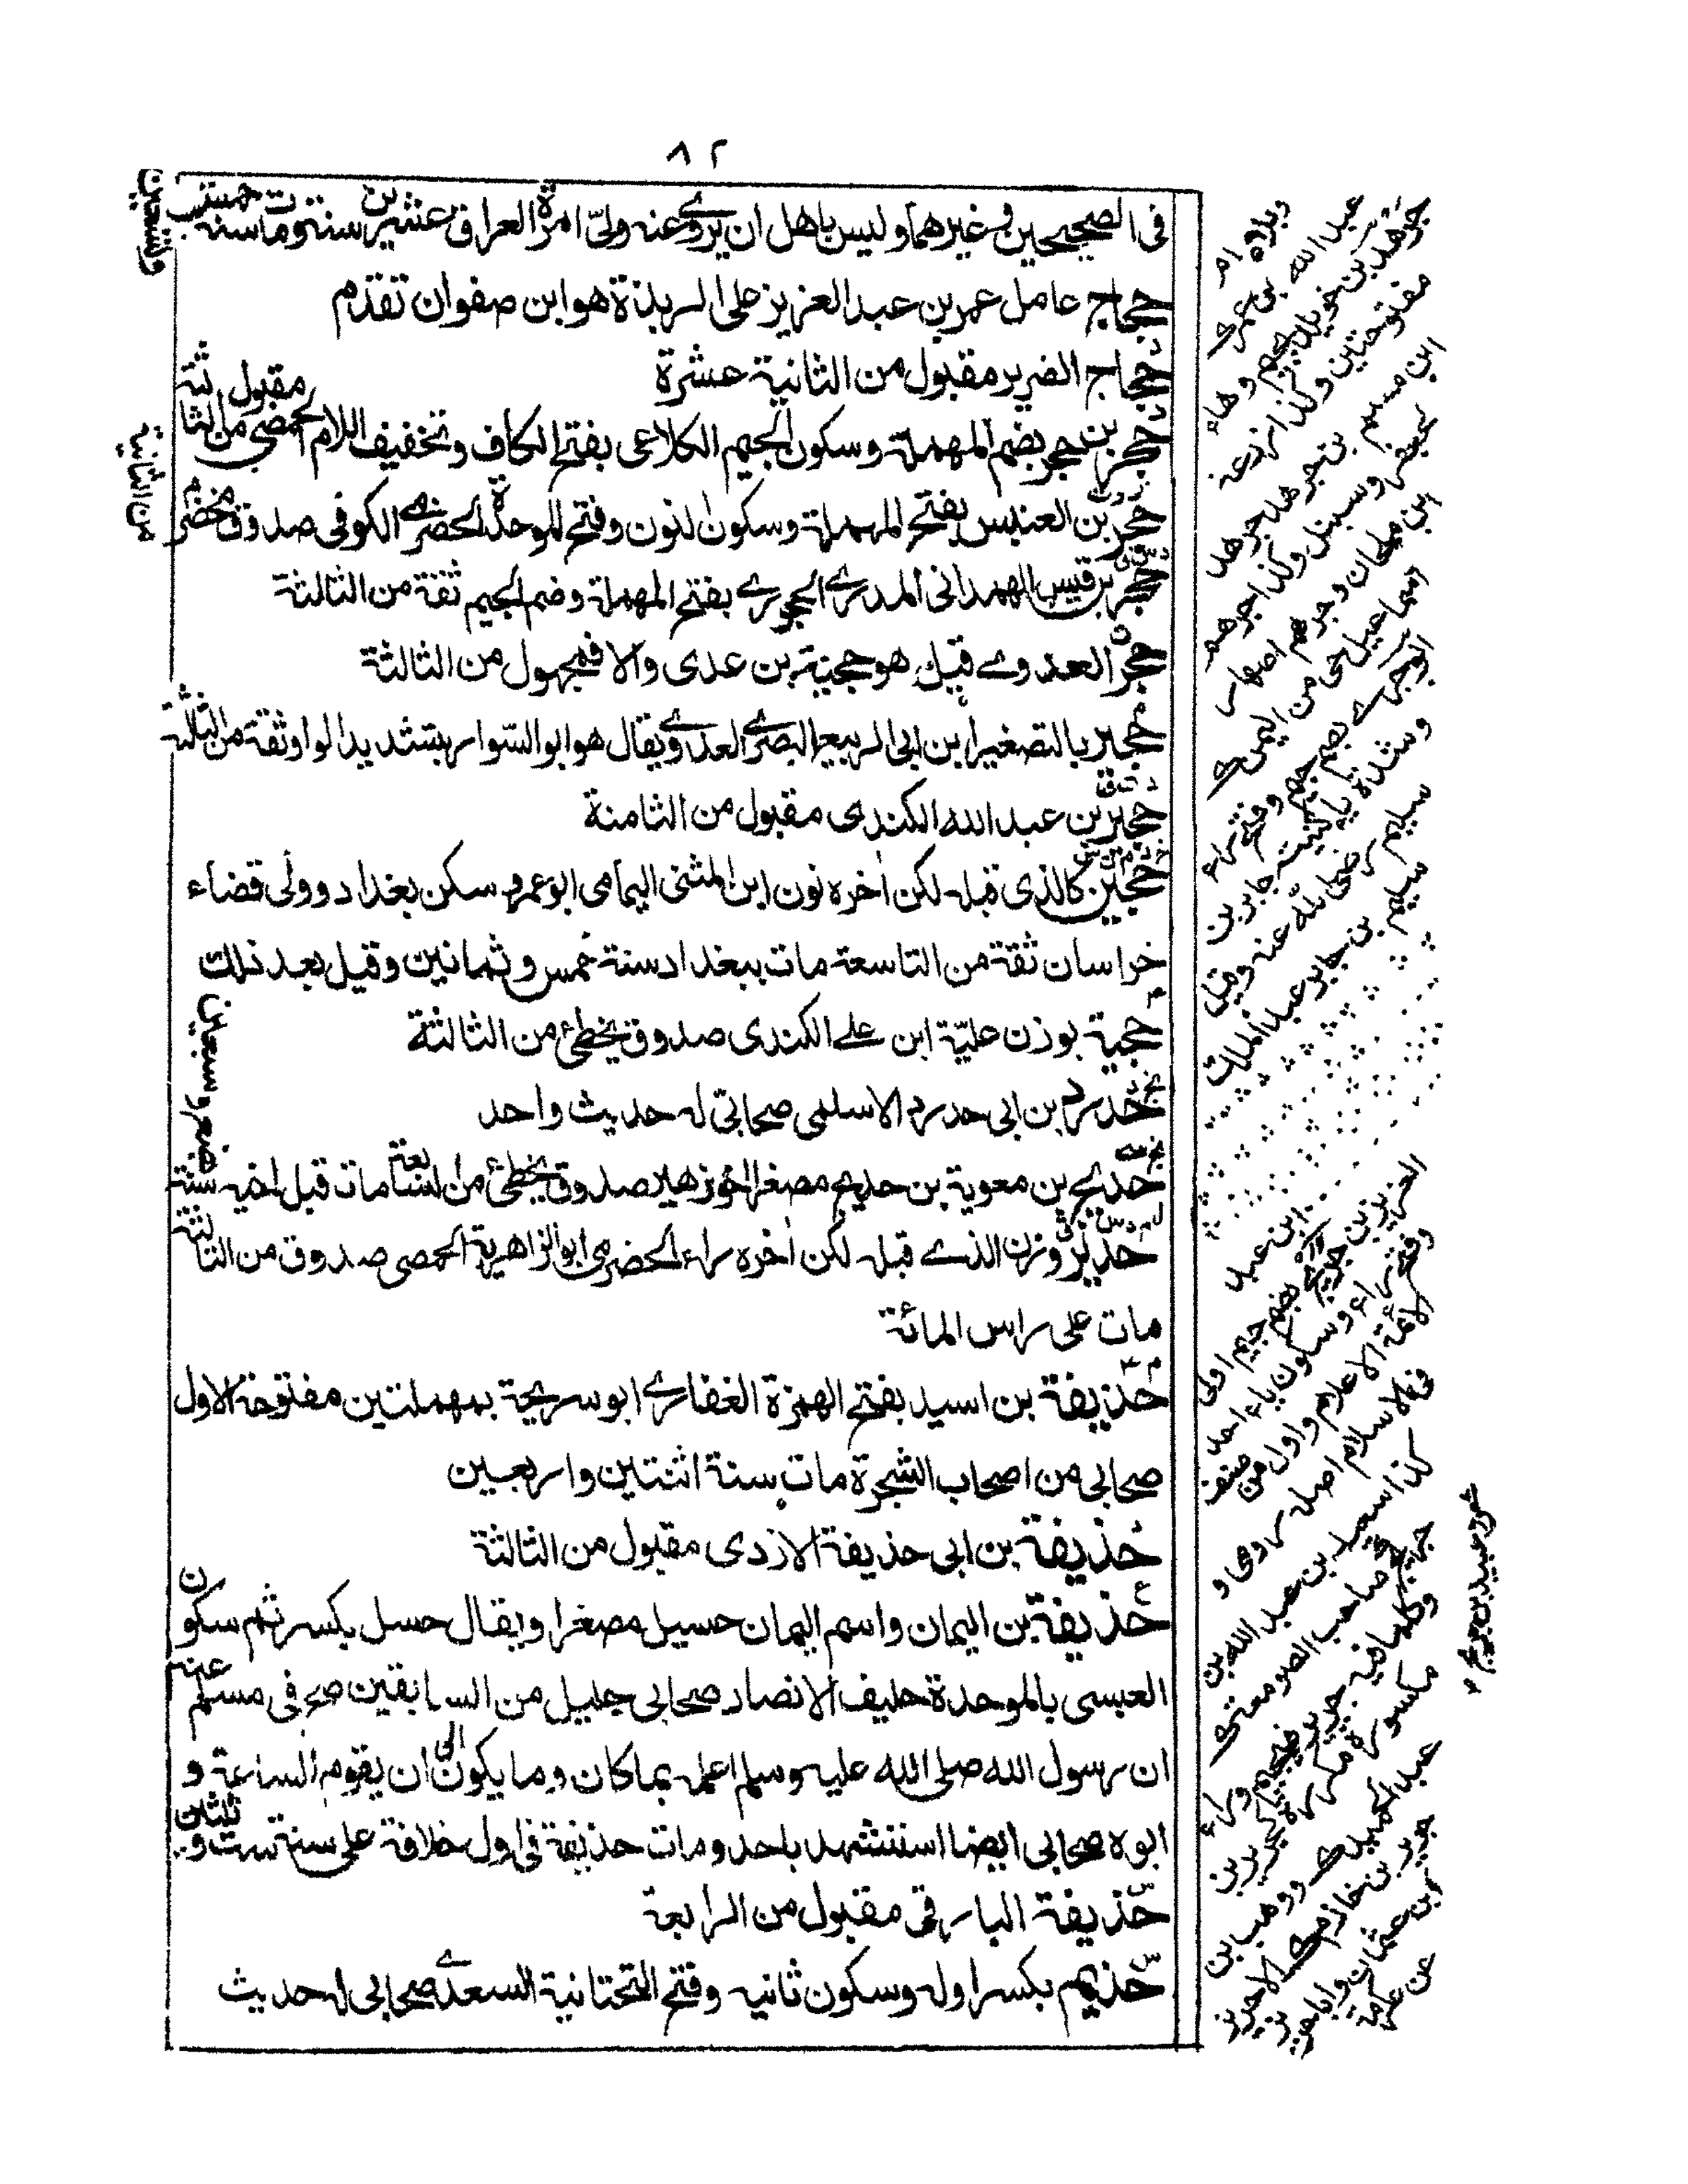 ٨٢
في الصحيحين وغيرهما وليس باهل ان يروى عنه ولي امرة العراق عشرين سنة ومات سنة خمس وتسعين
حجاج عامل عمر بن عبد العزيز على الربذة هو ابن صفوان تقدم
حجاج الضرير مقبول من الثانية عشرة
حجر بن حجر بضم المهملة وسكون الجيم الكلاعي بفتح الكاف وتخفيف اللام الحمصي مقبول من الثالثة
حجر بن العنبس بفتح المهملة وسكون النون وفتح الموحدة الحضرمي الكوفي صدوق مخضرم من الثانية
حجر بن قيس الهمداني المدري الحجوري بفتح المهملة وضم الجيم ثقة من الثالثة
حجر العدوي قيل هو حجية بن عدي والا فمجهول من الثالثة
حجير بالتصغير ابن ابي الربيع البصري العدوي يقال هو ابو السوار بتشديد الواو ثقة من الثالثة
حجير بن عبد الله الكندي مقبول من الثامنة
حجين كالذي قبله لكن اخره نون ابن المثنى اليمامي ابو عمر سكن بغداد وولي قضاء
خراسان ثقة من التاسعة مات ببغداد سنة خمس وثمانين وقيل بعد ذلك
حجية بوزن علية ابن علي الكندي صدوق يخطئ من الثالثة
حدرد بن ابي حدرد الاسلمي صحابي له حديث واحد
حديج بن معوية بن حديج مصغرا اخو زهير صدوق يخطئ من السابعة مات قبل اخيه سنة بضع وسبعين
حدير وزن الذي قبله لكن اخره راء الحضرمي ابو الزاهرية الحمصي صدوق من الثالثة
مات على راس المائة
حذيفة بن اسيد بفتح الهمزة الغفاري ابو سريحة بمهملتين مفتوحة الاول
صحابي من اصحاب الشجرة مات سنة اثنتين واربعين
حذيفة بن ابي حذيفة الازدي مقبول من الثالثة
حذيفة بن اليمان واسم اليمان حسيل مصغرا ويقال حسل بكسر ثم سكون
العبسي بالموحدة حليف الانصار صحابي جليل من السابقين صح في مسلم عنه
ان رسول الله صلى الله عليه وسلم اعلمه بما كان وما يكون الى ان يقوم الساعة و
ابوه صحابي ايضا استشهد باحد ومات حذيفة في اول خلافة علي سنة ست وثلثين
حذيفة البارقي مقبول من الرابعة
حذيم بكسر اوله وسكون ثانيه وفتح التحتانية السعدي صحابي له حديث
عبد الله بن عمر
جرهد بن خويلد
مفتوحتين وكذا زرعة
ابن مسلم بن جرهد
ابن ملحان وجرهم
اسماعيل حي من اليمن
ابو جري بضم جيم وفتح راء
وشدة ياء كنيته جابر بن
سليم رضي الله عنه وقيل
سليم بن جابر عبد الملك
ابن عبد
العزيز بن جريج بضم جيم اولى
وفتح راء وسكون ياء احد
الائمة الاعلام واول من صنف
في الاسلام اصله رومي و
كذا سعيد بن عبد الله بن
جريج صاحب الصومعة
وكلما فيه جرير فبجيم وراء
مكسورة مكررة كجرير بن
عبد الحميد ووهب بن
جرير بن خازم الا حريز
ابن عثمان وابا حريز
عن عكرمة